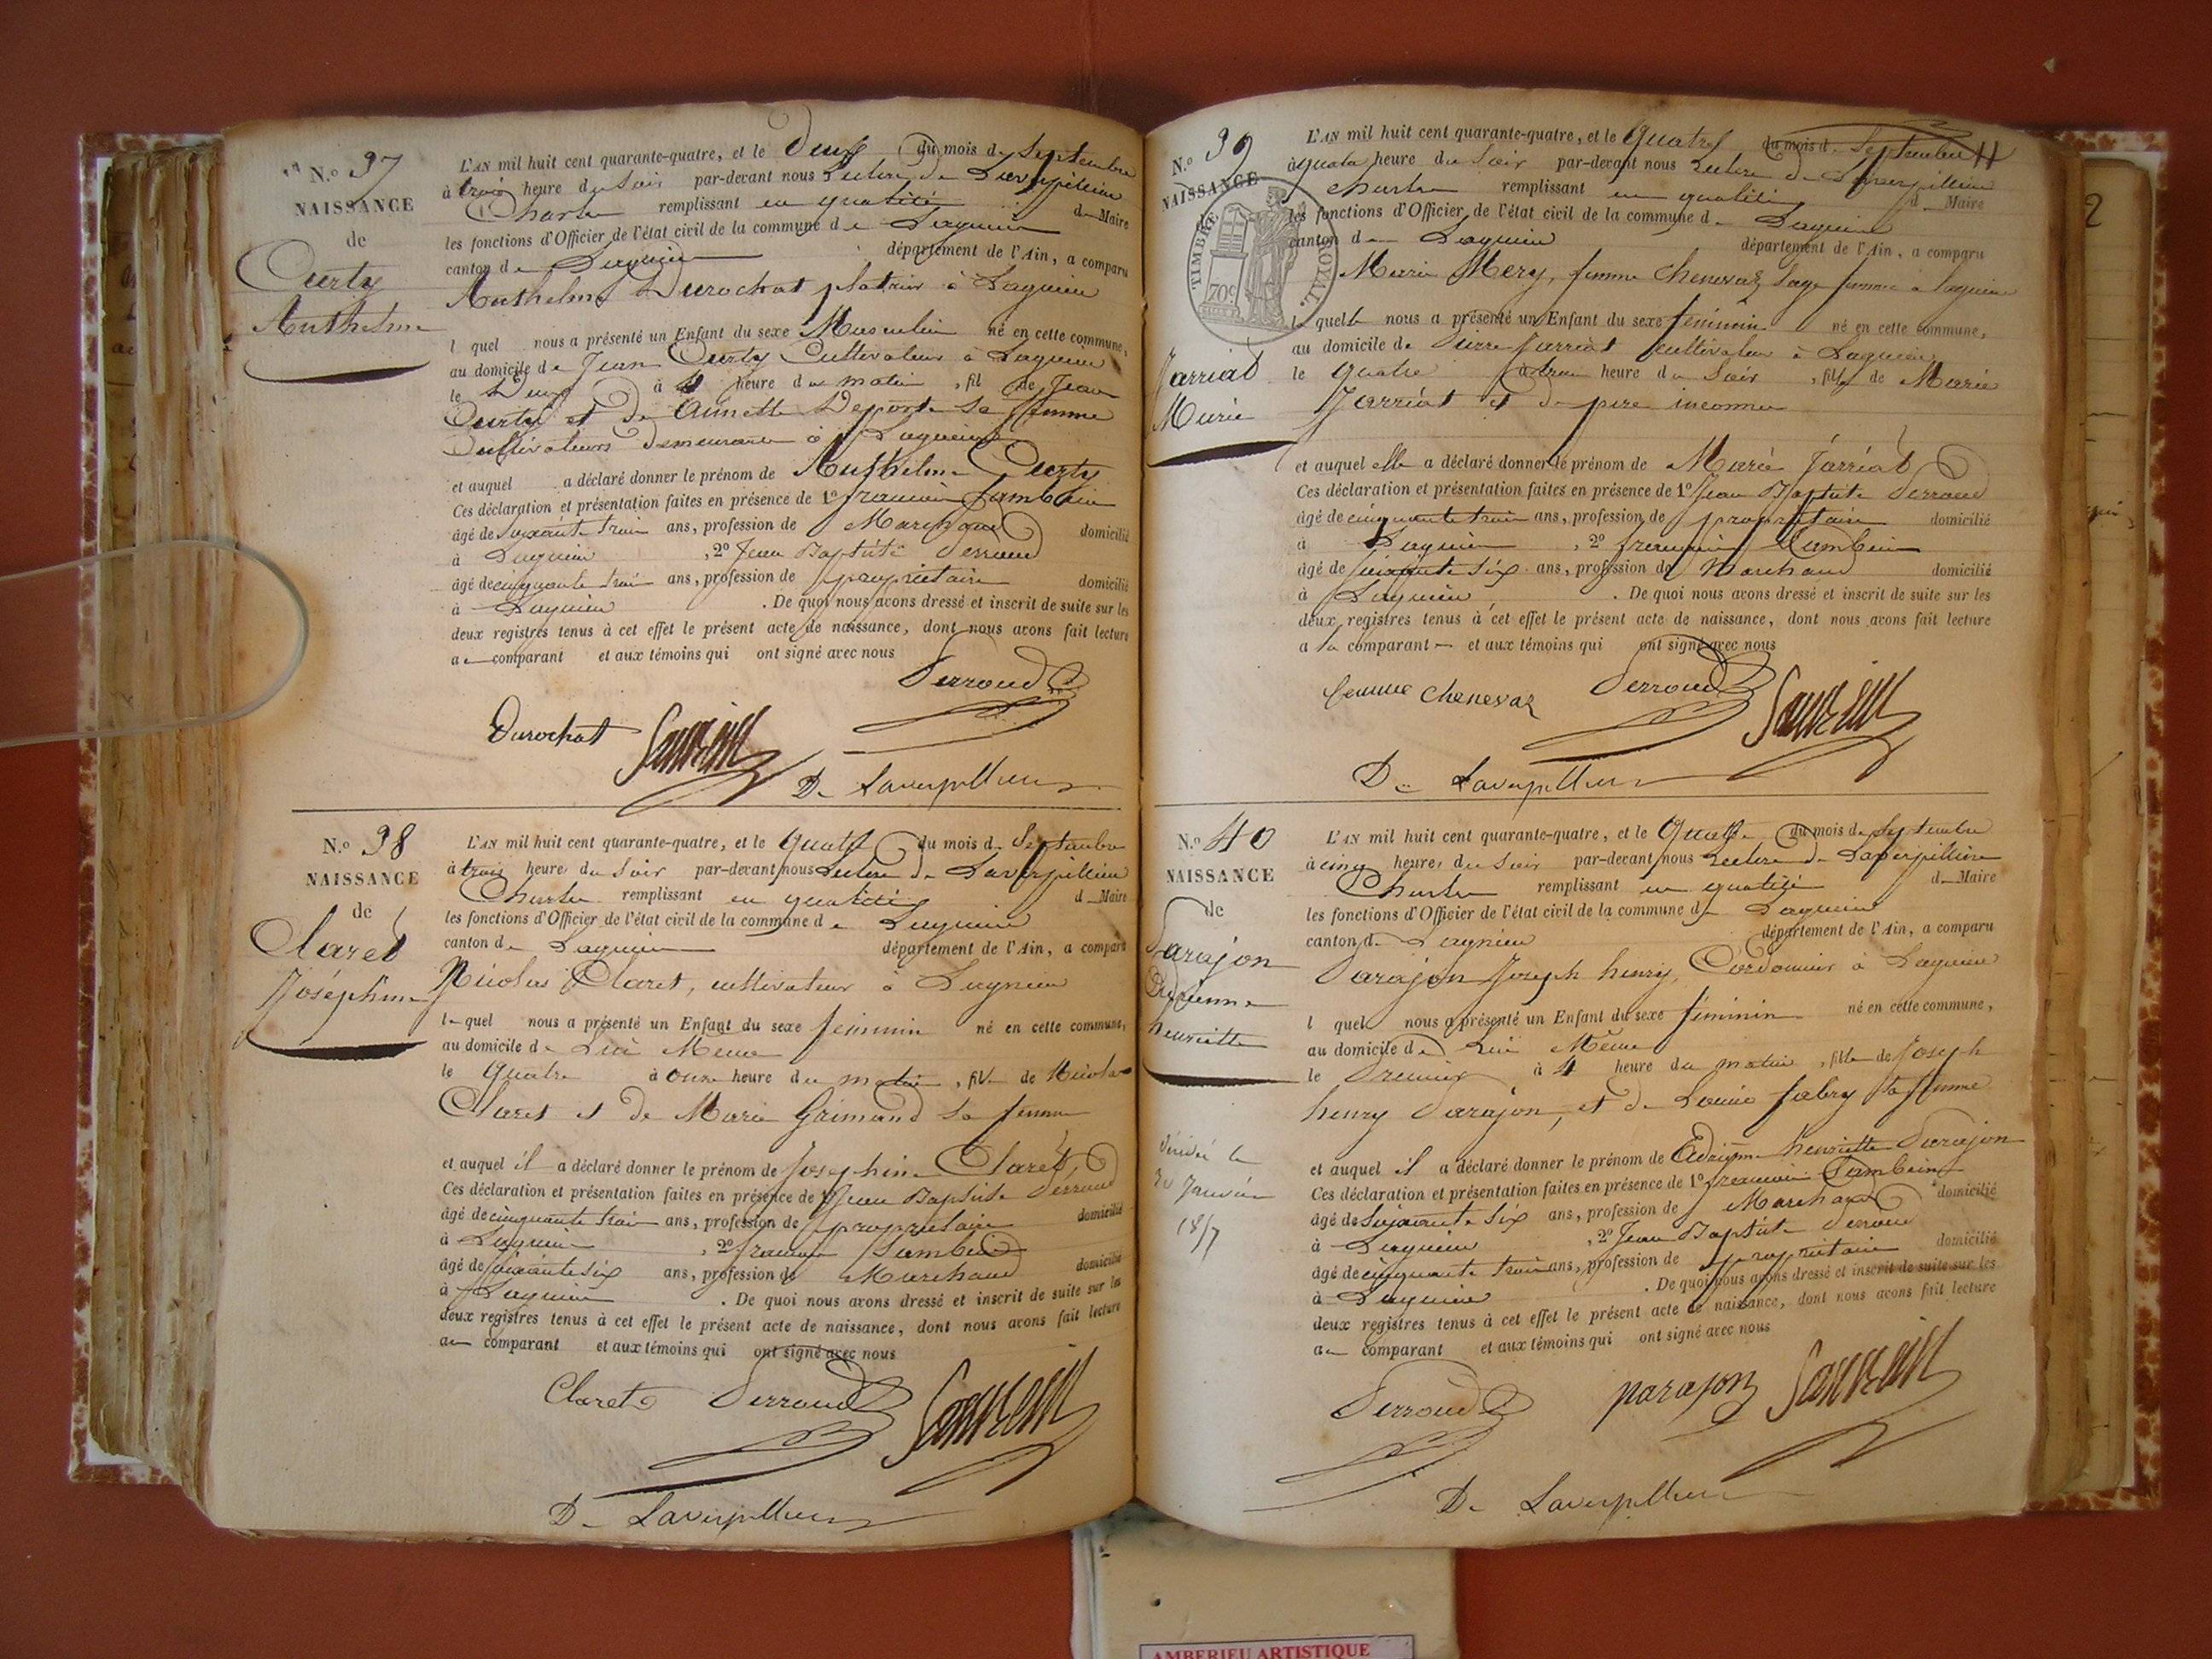 N.º 37
NAISSANCE
de
Curty
Anthelme
L'AN mil huit cent quarante-quatre, et le Deux du mois de Septembre
à trois heure du Soir par-devant nous de Laverpillière
Charles remplissant en qualité de Maire
les fonctions d'Officier de l'état civil de la commune de Lagnieu
canton de Lagnieu département de l'Ain, a comparu
Anthelme Durochat platrier à Lagnieu
l quel nous a présenté un Enfant du sexe Masculin né en cette commune,
au domicile de Jean Curty Cultivateur à Lagnieu
le Deux à heure du matin, fil de Jean
Curty et de Annette Deporte Sa femme
Cultivateurs demeurant à Lagnieu
et auquel a déclaré donner le prénom de Anthelme Curty
Ces déclaration et présentation faites en présence de 1º françois
âgé de Soixante ans, profession de Marchand domicilié
à Lagnieu, 2º Jean Baptiste Perroud
âgé de cinquante trois ans, profession de propriétaire domicilié
à Lagnieu. De quoi nous avons dressé et inscrit de suite sur les
deux registres tenus à cet effet le présent acte de naissance, dont nous avons fait lecture
au comparant et aux témoins qui ont signé avec nous
Perroud
Durochat
De Laverpillière
N.º 38
NAISSANCE
de
Claret
Joséphine
L'AN mil huit cent quarante-quatre, et le Quatre du mois de Septembre
à trois heures du Soir par-devant nous de Laverpillière
Charles remplissant en qualité de Maire
les fonctions d'Officier de l'état civil de la commune de Lagnieu
canton de Lagnieu département de l'Ain, a comparu
Nicolas Claret, cultivateur à Lagnieu
le quel nous a présenté un Enfant du sexe féminin né en cette commune,
au domicile de Lui Même
le Quatre à onze heure du matin, fille de Nicolas
Claret et de Marie Grimand Sa femme
et auquel il a déclaré donner le prénom de Josephine Claret
Ces déclaration et présentation faites en présence de 1º Jean Baptiste Perroud
âgé de cinquante trois ans, profession de propriétaire domicilié
à Lagnieu, 2º françois
âgé de soixante six ans, profession de Marchand domicilié
à Lagnieu. De quoi nous avons dressé et inscrit de suite sur les
deux registres tenus à cet effet le présent acte de naissance, dont nous avons fait lecture
au comparant et aux témoins qui ont signé avec nous
Claret Perroud
De Laverpillière
N.º 39
NAISSANCE
TIMBRE ROYAL
70c
Jarriat
Marie
L'AN mil huit cent quarante-quatre, et le Quatre du mois de Septembre
à quatre heure du Soir par-devant nous de Laverpillière
Charles remplissant en qualité de Maire
les fonctions d'Officier de l'état civil de la commune de Lagnieu
canton de Lagnieu département de l'Ain, a comparu
Marie Mery, femme Chenevaz Sage femme à Lagnieu
l quelle nous a présenté un Enfant du sexe féminin né en cette commune,
au domicile de Pierre Jarriat cultivateur à Lagnieu
le Quatre à trois heure du Soir, fille de Marie
Jarriat et de père inconnu
et auquel elle a déclaré donner le prénom de Marie Jarriat
Ces déclaration et présentation faites en présence de 1º Jean Baptiste Perroud
âgé de cinquante trois ans, profession de propriétaire domicilié
à Lagnieu, 2º françois
âgé de soixante six ans, profession de Marchand domicilié
à Lagnieu. De quoi nous avons dressé et inscrit de suite sur les
deux registres tenus à cet effet le présent acte de naissance, dont nous avons fait lecture
a la comparant et aux témoins qui ont signé avec nous
femme Chenevaz Perroud
De Laverpillière
N.º 40
NAISSANCE
de
Parajon
Adrienne
henriette
L'AN mil huit cent quarante-quatre, et le Quatre du mois de Septembre
à cinq heures du Soir par-devant nous de Laverpillière
Charles remplissant en qualité de Maire
les fonctions d'Officier de l'état civil de la commune de Lagnieu
canton de Lagnieu département de l'Ain, a comparu
Parajon Joseph henry, Cordonnier à Lagnieu
l quel nous a présenté un Enfant du sexe féminin né en cette commune,
au domicile de Lui Même
le Premier à 4 heure du matin, fille de Joseph
henry Parajon, et de Louise fabry Sa femme
et auquel il a déclaré donner le prénom de Adrienne henriette Parajon
Ces déclaration et présentation faites en présence de 1º françois
âgé de Soixante Six ans, profession de Marchand domicilié
à Lagnieu, 2º Jean Baptiste Perroud
âgé de cinquante trois ans, profession de propriétaire domicilié
à Lagnieu. De quoi nous avons dressé et inscrit de suite sur les
deux registres tenus à cet effet le présent acte de naissance, dont nous avons fait lecture
au comparant et aux témoins qui ont signé avec nous
Perroud parajon
De Laverpillière
AMBERIEU ARTISTIQUE